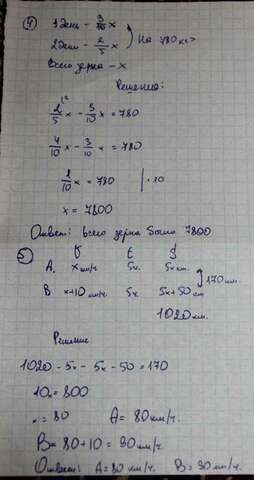 ④ 1 день - 3/10 x
2 день - 2/5 x
На 780 кг >
Всего зерна - x
Решение:
2/5 x - 3/10 x = 780
4/10 x - 3/10 x = 780
1/10 x = 780 | · 10
x = 7800
Ответ: всего зерна было 7800
⑤ v t s
A. x км/ч. 5ч. 5x км.
B x+10 км/ч 5ч 5x+50 км
170 км.
1020 км.
Решение
1020 - 5x - 5x - 50 = 170
10x = 800
x = 80 A = 80 км/ч.
B = 80 + 10 = 90 км/ч.
Ответ: A = 80 км/ч. B = 90 км/ч.